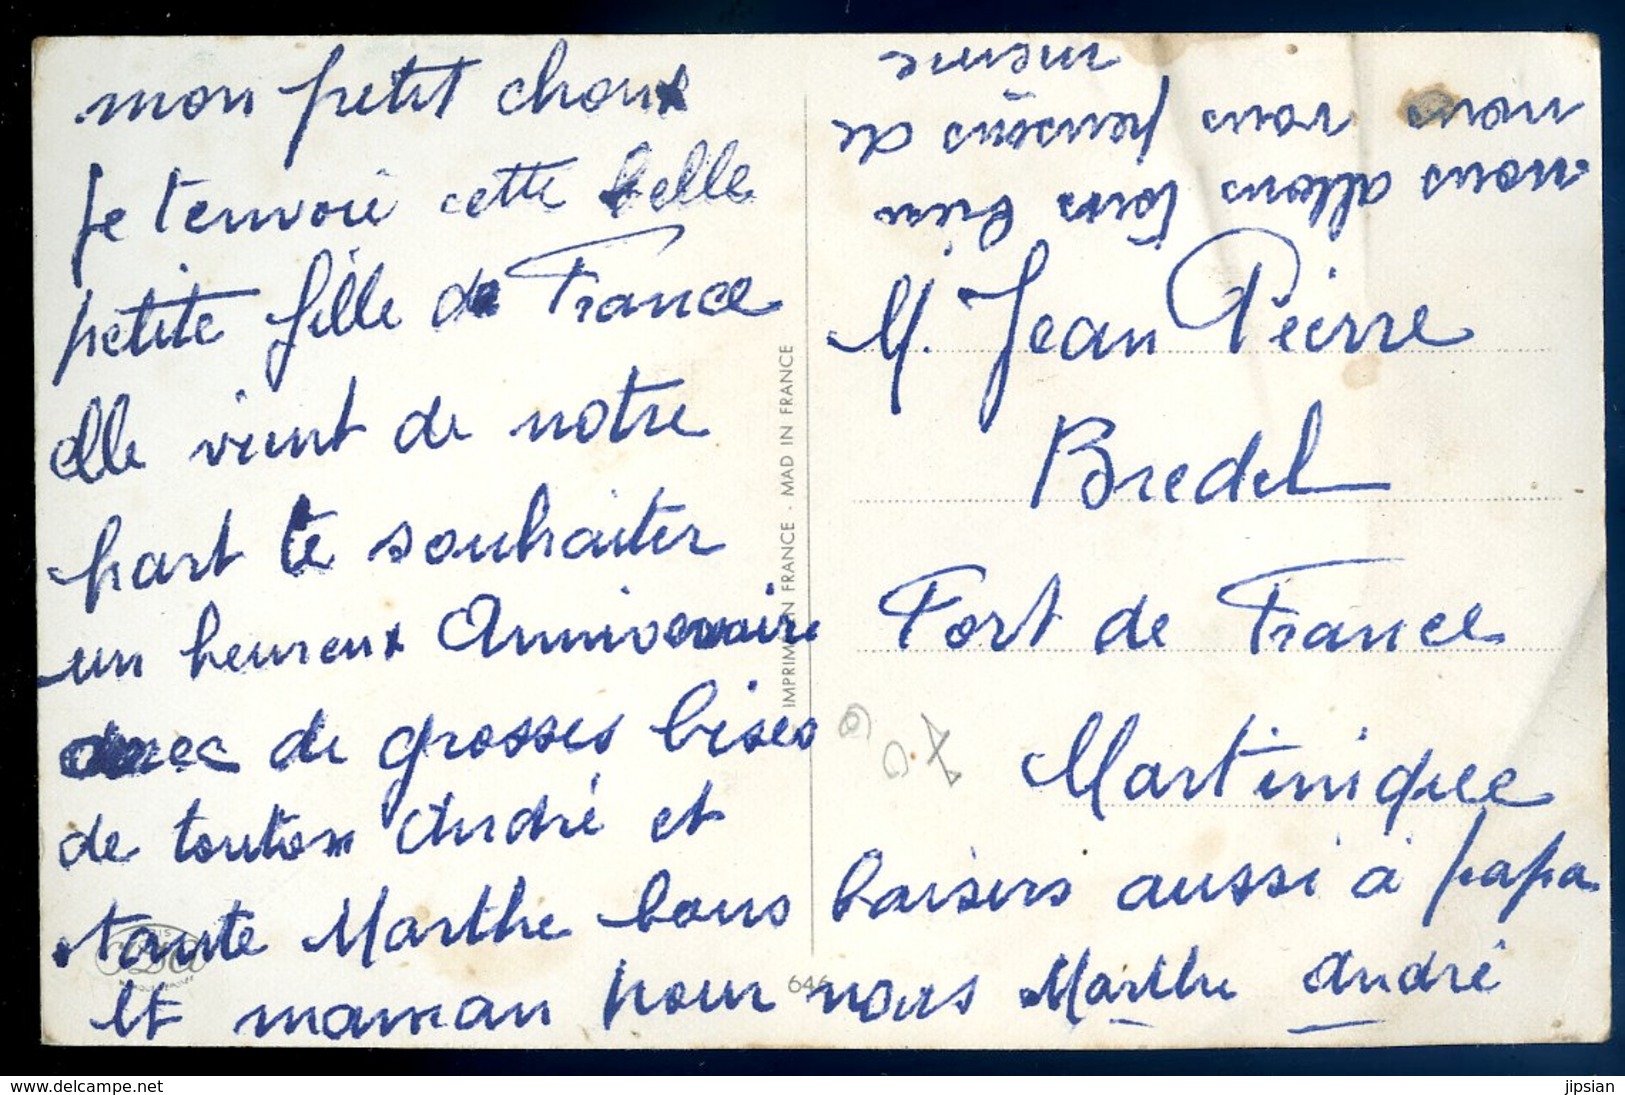 mon petit choux
Je t'envoie cette belle
petite fille de France
elle vient de notre
part te souhaiter
un heureux Anniversaire
avec de grosses bises
de tonton André et
tante Marthe bons baisers aussi à papa
et maman pour nous Marthe André
nous allons tous bien
nous vous pensons de
même
M. Jean Pierre
Bredel
Fort de France
Martinique
IMPRIMÉ EN FRANCE - MAD IN FRANCE
646
delcampe.net
jipsian